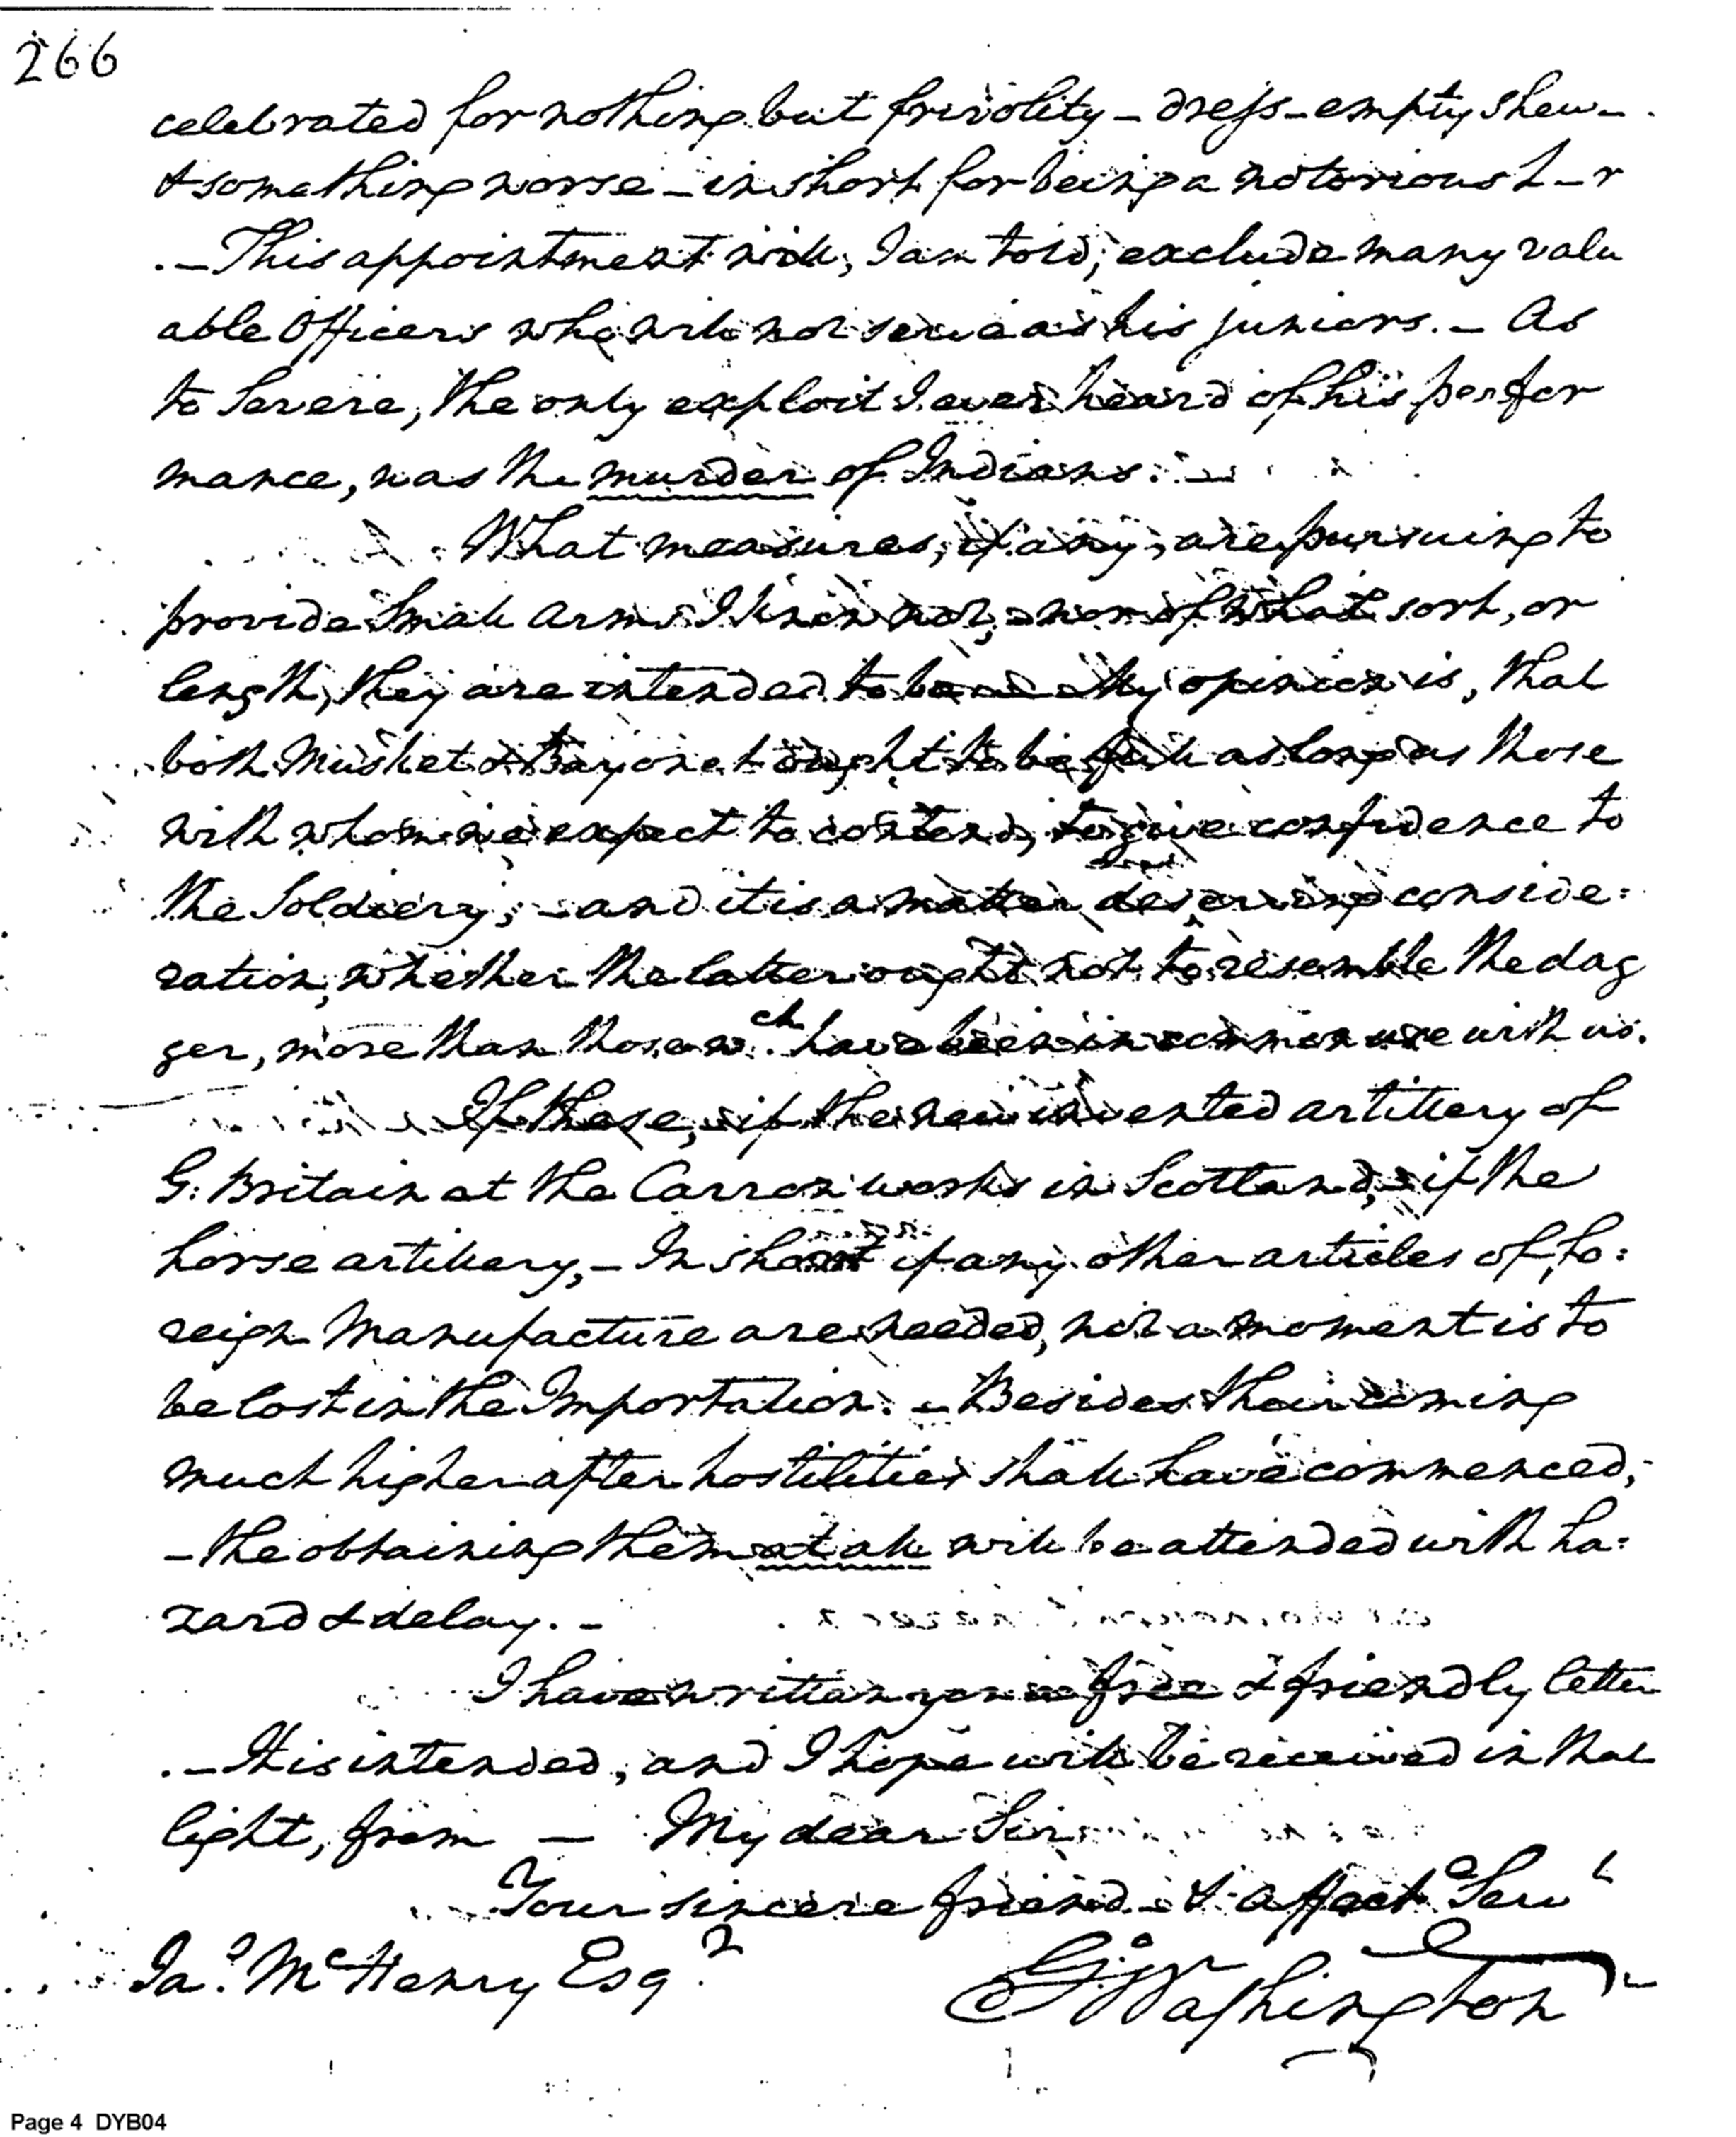 266
celebrated for nothing but frivolity – dress – empty shew –
& something worse – in short for being a notorious L–r
. – This appointment will, I am told, exclude many valu
able Officers who will not serve as his juniors. – As
to Severe, the only exploit I ever heard of his perfor
mance, was the murder of Indians. –
What measures, if any, are pursuing to
provide Small Arms I know not, – nor of what sort, or
length, they are intended to be – My opinion is, that
both Musket & Bayonet ought to be full as long as those
with whom we expect to contend, to give confidence to
the Soldiery; – and it is a matter deserving conside:
ration, whether the latter ought not to resemble the dag
ger, more than those wch. have been in common use with us.
If these, – if the new invented artillery of
G: Britain at the Carron works in Scotland, – if the
horse artillery, – In short if any other articles of fo:
reign Manufacture are needed, not a moment is to
be lost in the Importation. – Besides their coming
much higher after hostilities shall have commenced;
– the obtaining them at all will be attended with ha:
zard & delay. –
I have written you a free & friendly letter
. – It is intended, and I hope will be received in that
light, from – My dear Sir
Your sincere friend & affecte Servt
Jas. McHenry Esqr.
Go: Washington
Page 4 DYB04